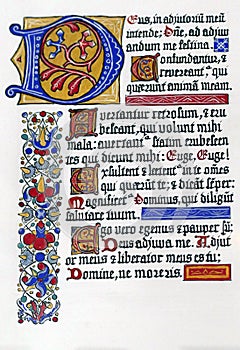 Deus, in adjutoriū meū
intende: Dñe, ad adjuv
andum me festina.
Confundantur, &
revereant', qui
quærunt animā meam.
Avertantur retrosum, & eru
bescant, qui volunt mihi
mala: avertant' statim erubescen
tes qui dicunt mihi: Euge, Euge!
Exsultent & lætent' in te omēs
qui quærūt te; & dicāt sēper:
Magnificet' Dominus, qui diligūt
salutare tuum.
Ego vero egenus & pauper sū:
Deus adjuva me. Adjut
or meus & liberator meus es tu;
Domine, ne moreris.